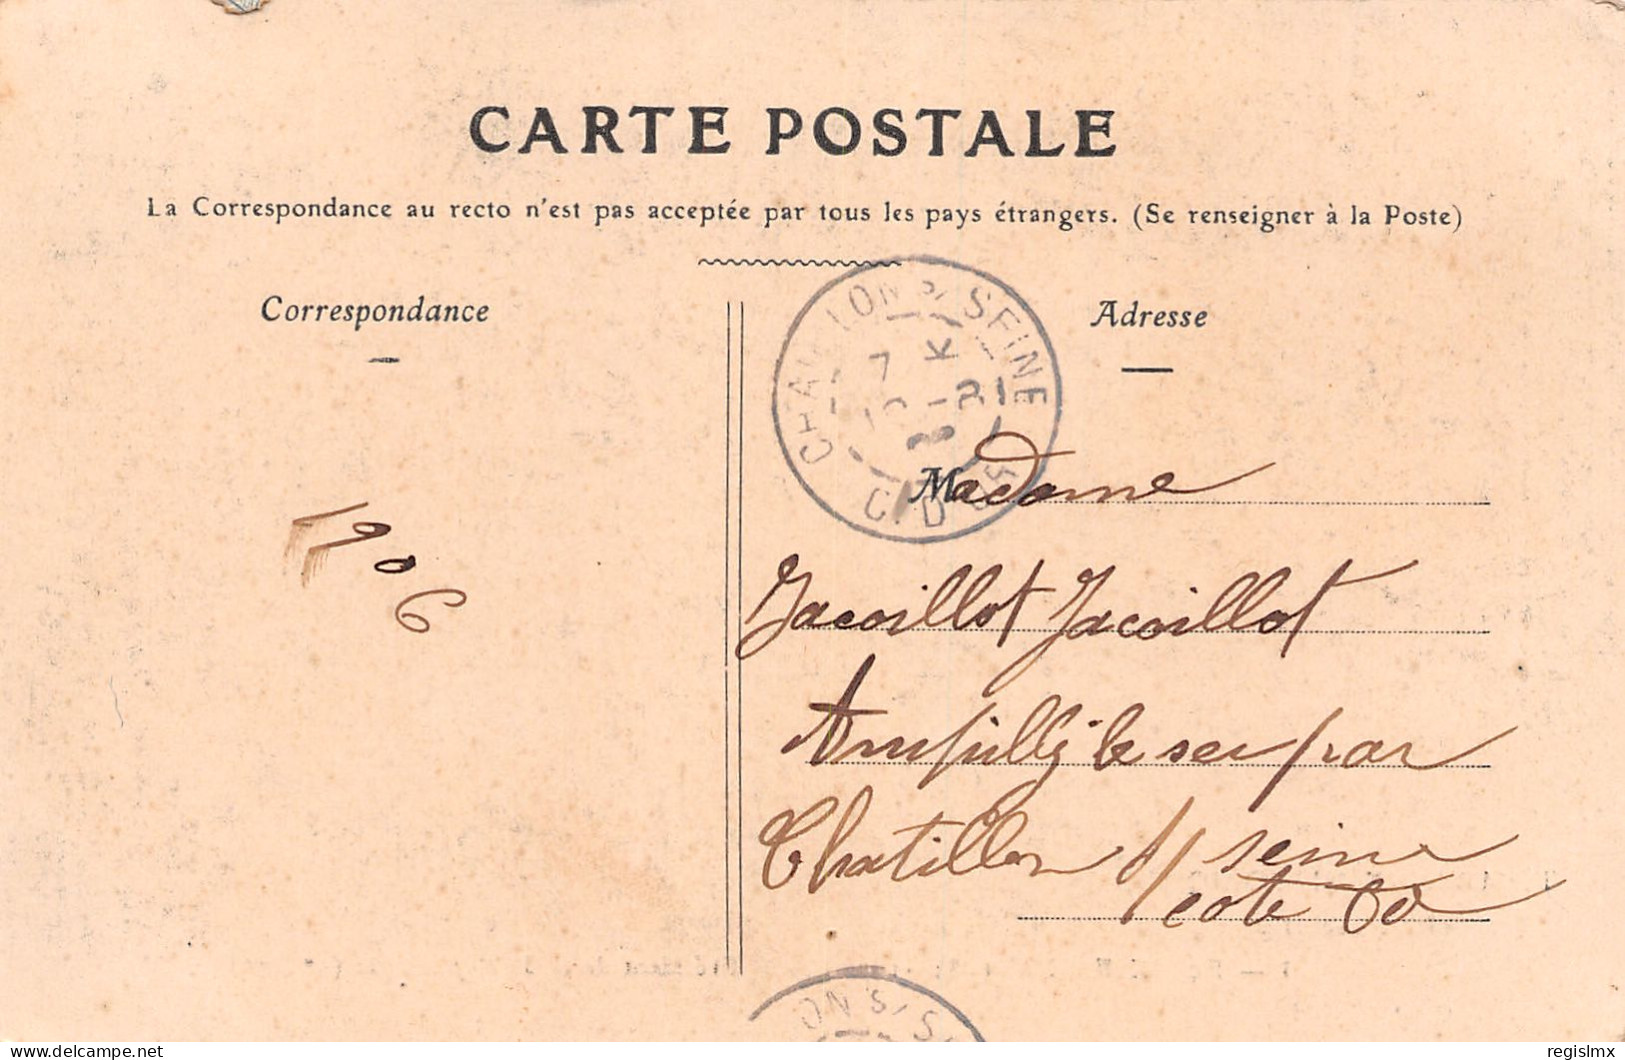 CARTE POSTALE
La Correspondance au recto n'est pas acceptée par tous les pays étrangers. (Se renseigner à la Poste)
Correspondance
Adresse
CHATILLON S/ SEINE
Madame
1906
Jacoillot Jacoillot
Ampilly le sec par
Chatillon s/ seine
cote Od
ON S/ S
delcampe.net
regislmx